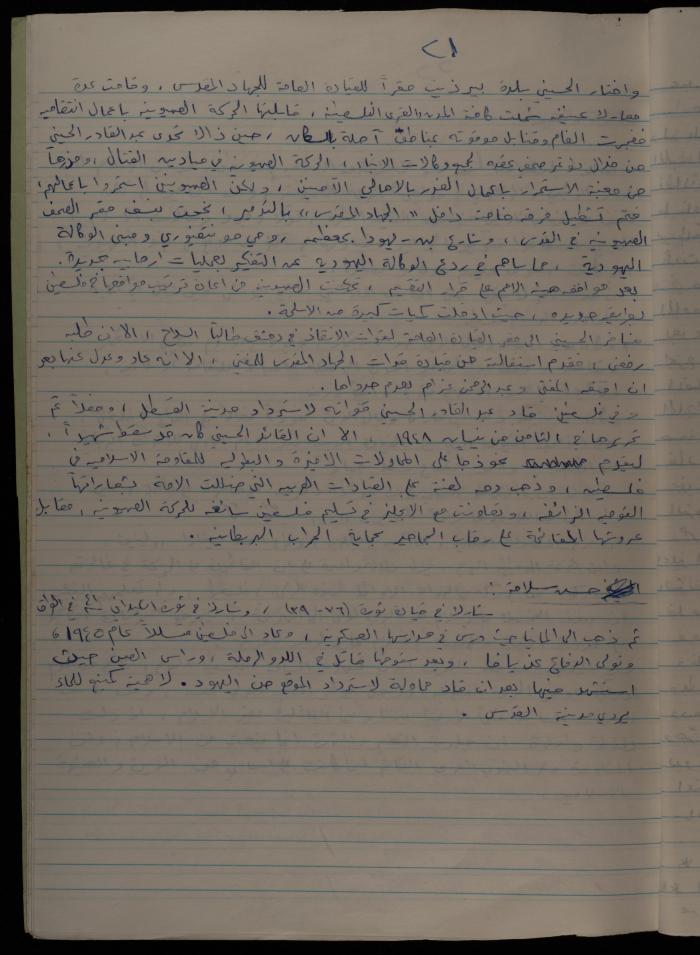 ٢١
واختار الحسيني بلدة بيرزيت مقراً للقيادة العامة للجهاد المقدس ، وقامت عدة
معارك عنيفة شملت كافة المدن والقرى الفلسطينية ، قابلتها الحركة الصهيونية باعمال انتقامية
ففجرت الغام وقنابل موقوته بمناطق آهلة بالسكان ، حينذاك تحدى عبد القادر الحسيني
من خلال مؤتمر صحفي عقده لجميع وكالات الانباء ، الحركة الصهيونية في ميادين القتال ، وحذرها
من مغبة الاستمرار باعمال الغدر بالاهالي الآمنين ، ولكن الصهيونيين استمروا باعمالهم،
فتم تشكيل فرقة خاصة داخل " الجهاد المقدس " بالتدمير ، نجحت بنسف مقر الصحف
الصهيونية في القدس ، وشارع بن يهودا بمعظمه ، وحي مونتفيوري ومبنى الوكالة
اليهودية ، مما ساهم في ردع الوكالة اليهودية عن التفكير بعمليات ارهابية جديدة .
بعد موافقة هيئة الامم على قرار التقسيم ، تمكنت الصهيونية من اعادة ترتيب مواقعها في فلسطين
بطريقة جديدة ، حيث ادخلت كميات كبيرة من الاسلحة .
الحسيني الى مقر القيادة العامة لقوات الانقاذ في دمشق طالباً السلاح ، الا ان طلبه
رفض ، فقدم استقالته من قيادة قوات الجهاد المقدس للمفتي ، الا انه عاد وعدل عنها بعد
ان اقنعه المفتي وعبد الرحمن عزام بعدم جدواها .
و في فلسطين قاد عبد القادر الحسيني قواته لاسترداد مدينة القسطل ، وفعلاً تم
تحريرها في الثامن من نيسان ١٩٤٨ ، الا ان القائد الحسيني كان قد سقط شهيداً ،
ليقدم نموذجاً على المحاولات الاخيرة والبطولية للمقاومة الاسلامية في
فلسطين ، وذهب دمه لعنة على القيادات العربية التي ضللت الامة بشعاراتها
القومية الزائفة ، وتعاونت مع الانجليز في تسليم فلسطين سائغة للحركة الصهيونية ، مقابل
عروشها القائمة على رقاب الجماهير بحماية الحراب البريطانية .
حسن سلامة :
شارك في قيادة ثورة (٣٦-٣٩) ، وشارك في ثورة الكيلاني في العراق
ثم ذهب الى المانيا حيث درس في مدارسها العسكرية ، وعاد الى فلسطين متسللاً عام ١٩٤٥ ،
وتولى الدفاع عن يافا ، وبعد سقوطها قاتل في اللد والرملة ، وراس العين حيث
استشهد فيها بعد ان قاد محاولة لاسترداد الموقع من اليهود . لاهمية كنبع للماء
يروي مدينة القدس .